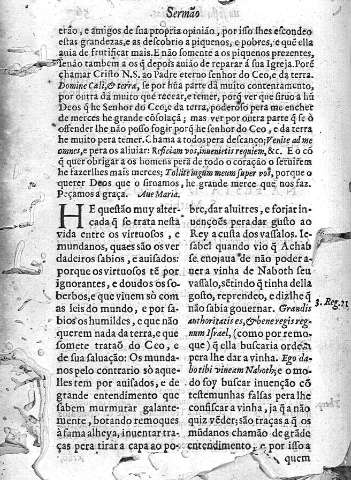 Sermão
erão, e amigos de sua propria opinião, por isso lhes escondeo
estas grandezas, e as descobrio a piquenos, e pobres, e quẽ ella
auia de frutificar mais. E não somente a os piquenos prezentes,
senão tambem a os q̃ depois auião de reparar á sua Igreja. Porq̃
chamar Cristo N.S. ao Padre eterno senhor do Ceo, e da terra.
Domine Cæli, & terra, se por hũa parte dá muito contentamento,
por outra dá muito que recear, e temer, porq̃ ver que siruo a hũ
Deos q̃ he Senhor do Ceo, e da terra, poderoso pera me encher
de merces he grande cõsolaçã; mas ver por outra parte q̃ se o
offender lhe não posso fogir porq̃ he senhor do Ceo, e da terra
he muito pera temer. Chama a todos pera descanço; Venite ad me
omnes, e pera os aliuiar: Reficiam vos, inuenietis requiem, &c. E o cõ
que quer obrigar a os homens pera de todo o coração o seruirem
he fazerlhes mais merces; Tollite iugum meum super vos, porque o
querer Deos que o siruamos, he grande merce que nos faz.
Peçamos a graça. Aue Maria.
HE questão muy alter-
cada q̃ se trata nesta
vida entre os virtuosos, e
mundanos, quaes são os ver
dadeiros sabios, e auisados:
porque os virtuosos tẽ por
ignorantes, e doudos os so-
berbos, e que viuem sò com
as leis do mundo, e por sa-
bios os humildes, e que não
querem nada da terra, e que
somete tratão do Ceo, e
de sua saluação: Os munda-
nos pelo contrario sò aque-
lles tem por auisados, e de
grande entendimento que
sabem murmurar galante-
mente, botando remoques
à fama alheya, inuentar tra-
ças pera tirar a capa ao po-
bre, dar aluitres, e forjar in-
uenções pera dar gusto ao
Rey a custa dos vassalos. Ie-
sabel quando vio q̃ Achab
se enojaua de não poder a-
uer a vinha de Naboth seu
vassalo, sẽtindo q̃ tinha della
gosto, reprendeo, e dizlhe q̃
não sabia gouernar. Grandis
authoritatis es, & bene regis reg
num Israel, (como por remo-
que) q̃ ella buscaria ordem
pera lhe dar a vinha. Ego da-
bo tibi vineam Naboth; e o mo-
do foy buscar inuenção cõ
testemunhas falsas pera lhe
confiscar a vinha, ja q̃ a não
quiz vẽder; são traças a q̃ os
mũdanos chamão de grãde
entendimento, e por isso a
quem
3. Reg. 21